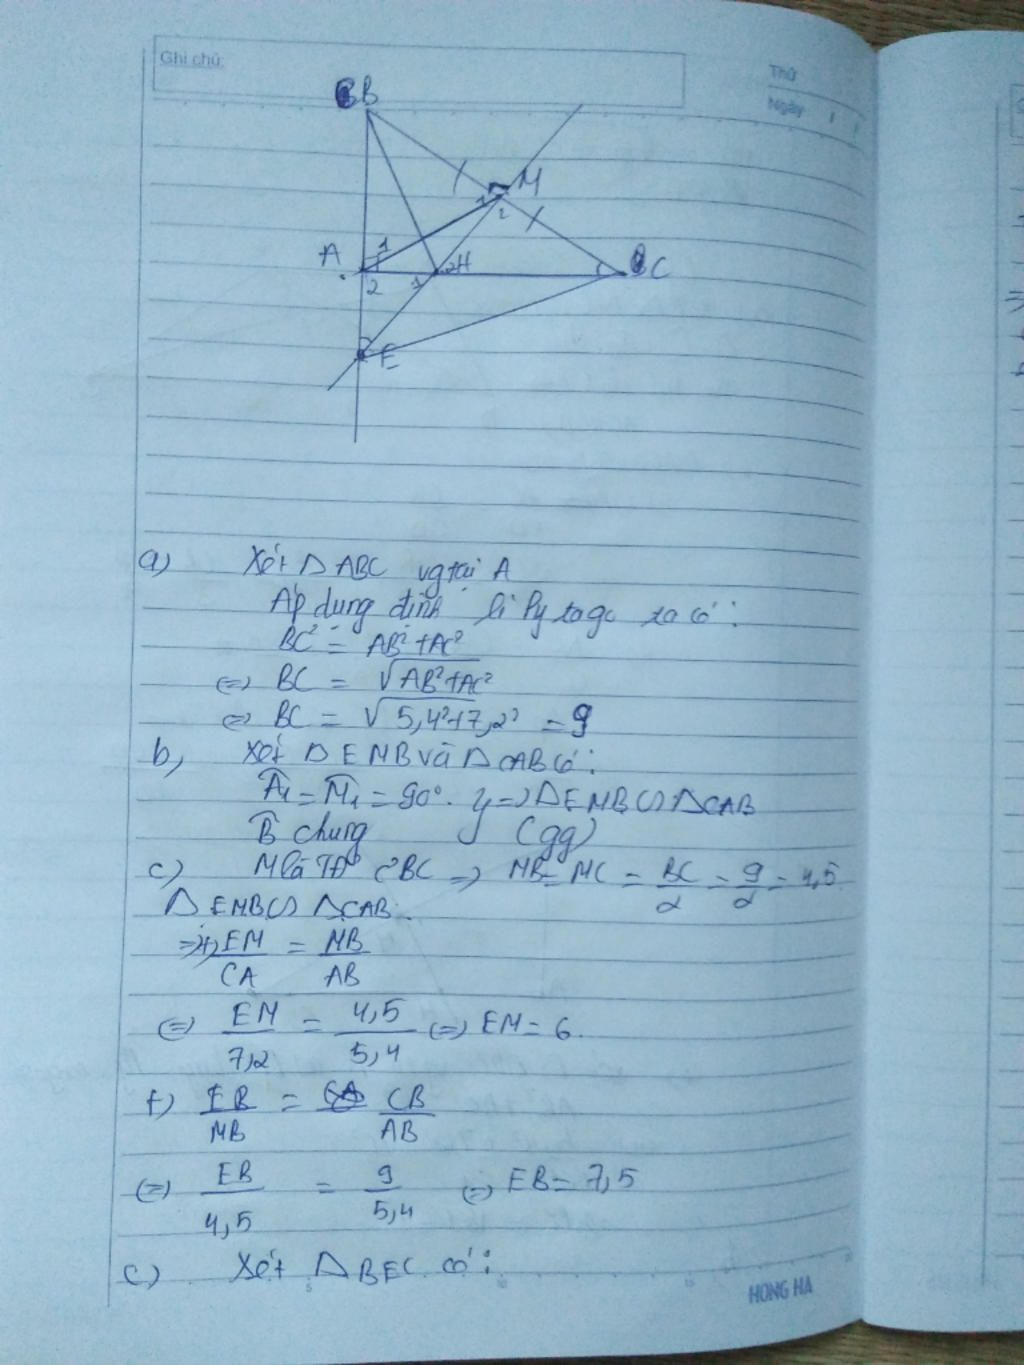 Ghi chú:
Thứ
Ngày
B
M
1
2
A
1
2
1
2H
C
E
a) Xét Δ ABC vg tại A
Áp dụng định lí Pytago ta có:
BC² = AB² + AC²
(=) BC = √AB²+AC²
(=) BC = √5,4²+7,2² = 9
b, Xét Δ EMB và Δ CAB có:
Â1 = M̂1 = 90°. } => Δ EMB ∽ Δ CAB
B̂ chung (gg)
c) M là TĐ BC => MB = MC = BC/2 = 9/2 = 4,5
Δ EMB ∽ Δ CAB.
=> +, EM/CA = MB/AB
(=) EM/7,2 = 4,5/5,4 (=) EM = 6.
+) EB/MB = CB/AB
(=) EB/4,5 = 9/5,4 (=) EB = 7,5
c) Xét Δ BEC có:
HONG HA